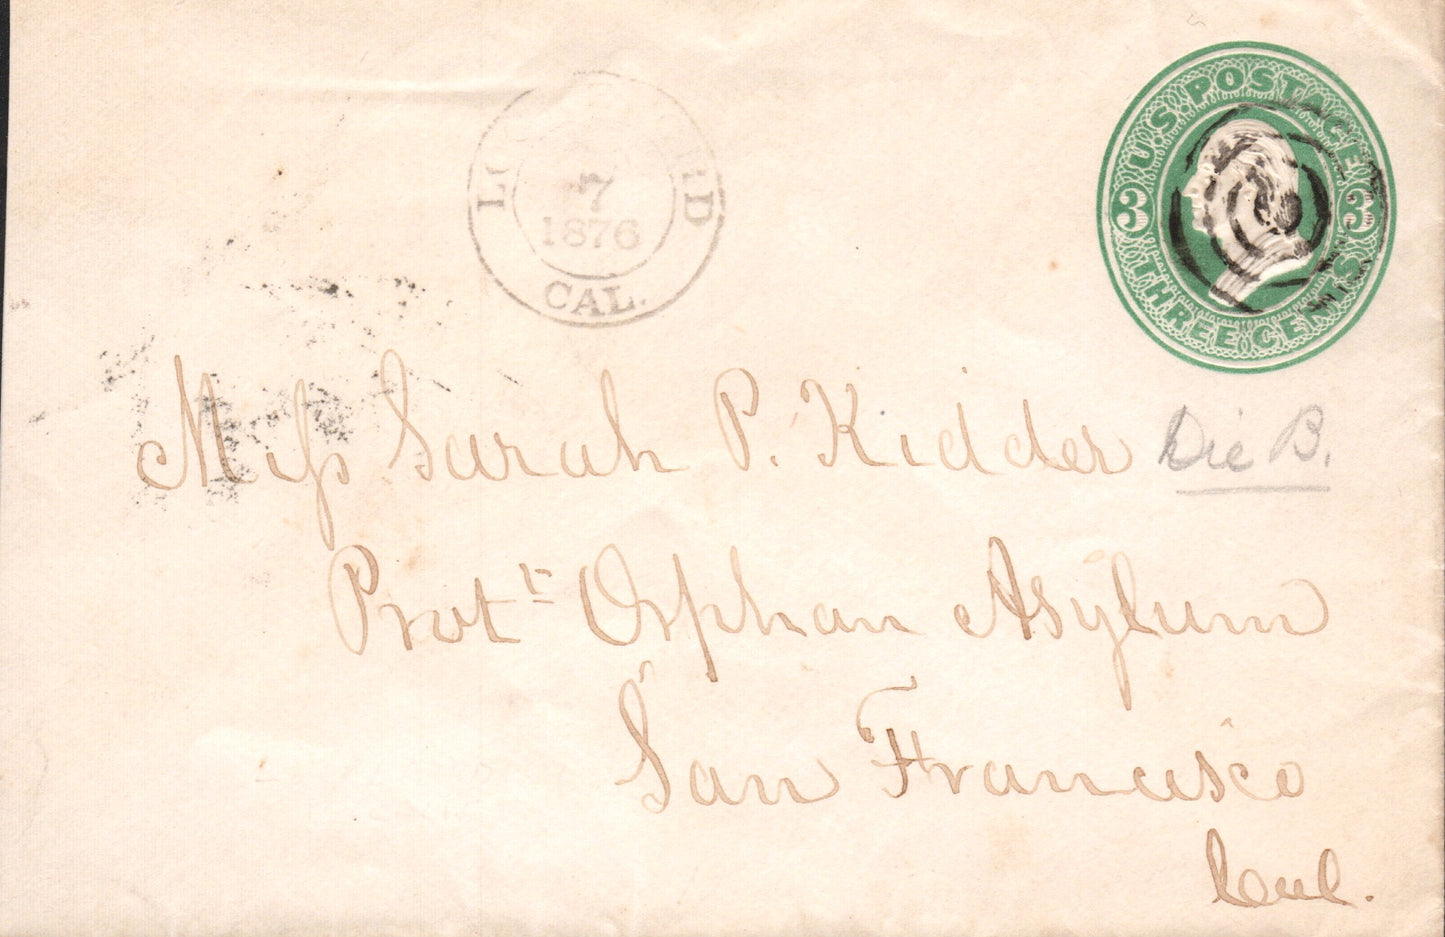 U.S. POSTAGE
3 3
THREE CENTS
7
1876
CAL.
Miss Sarah P. Kidder
Die B.
Prott Orphan Asylum
San Francisco
Cal.